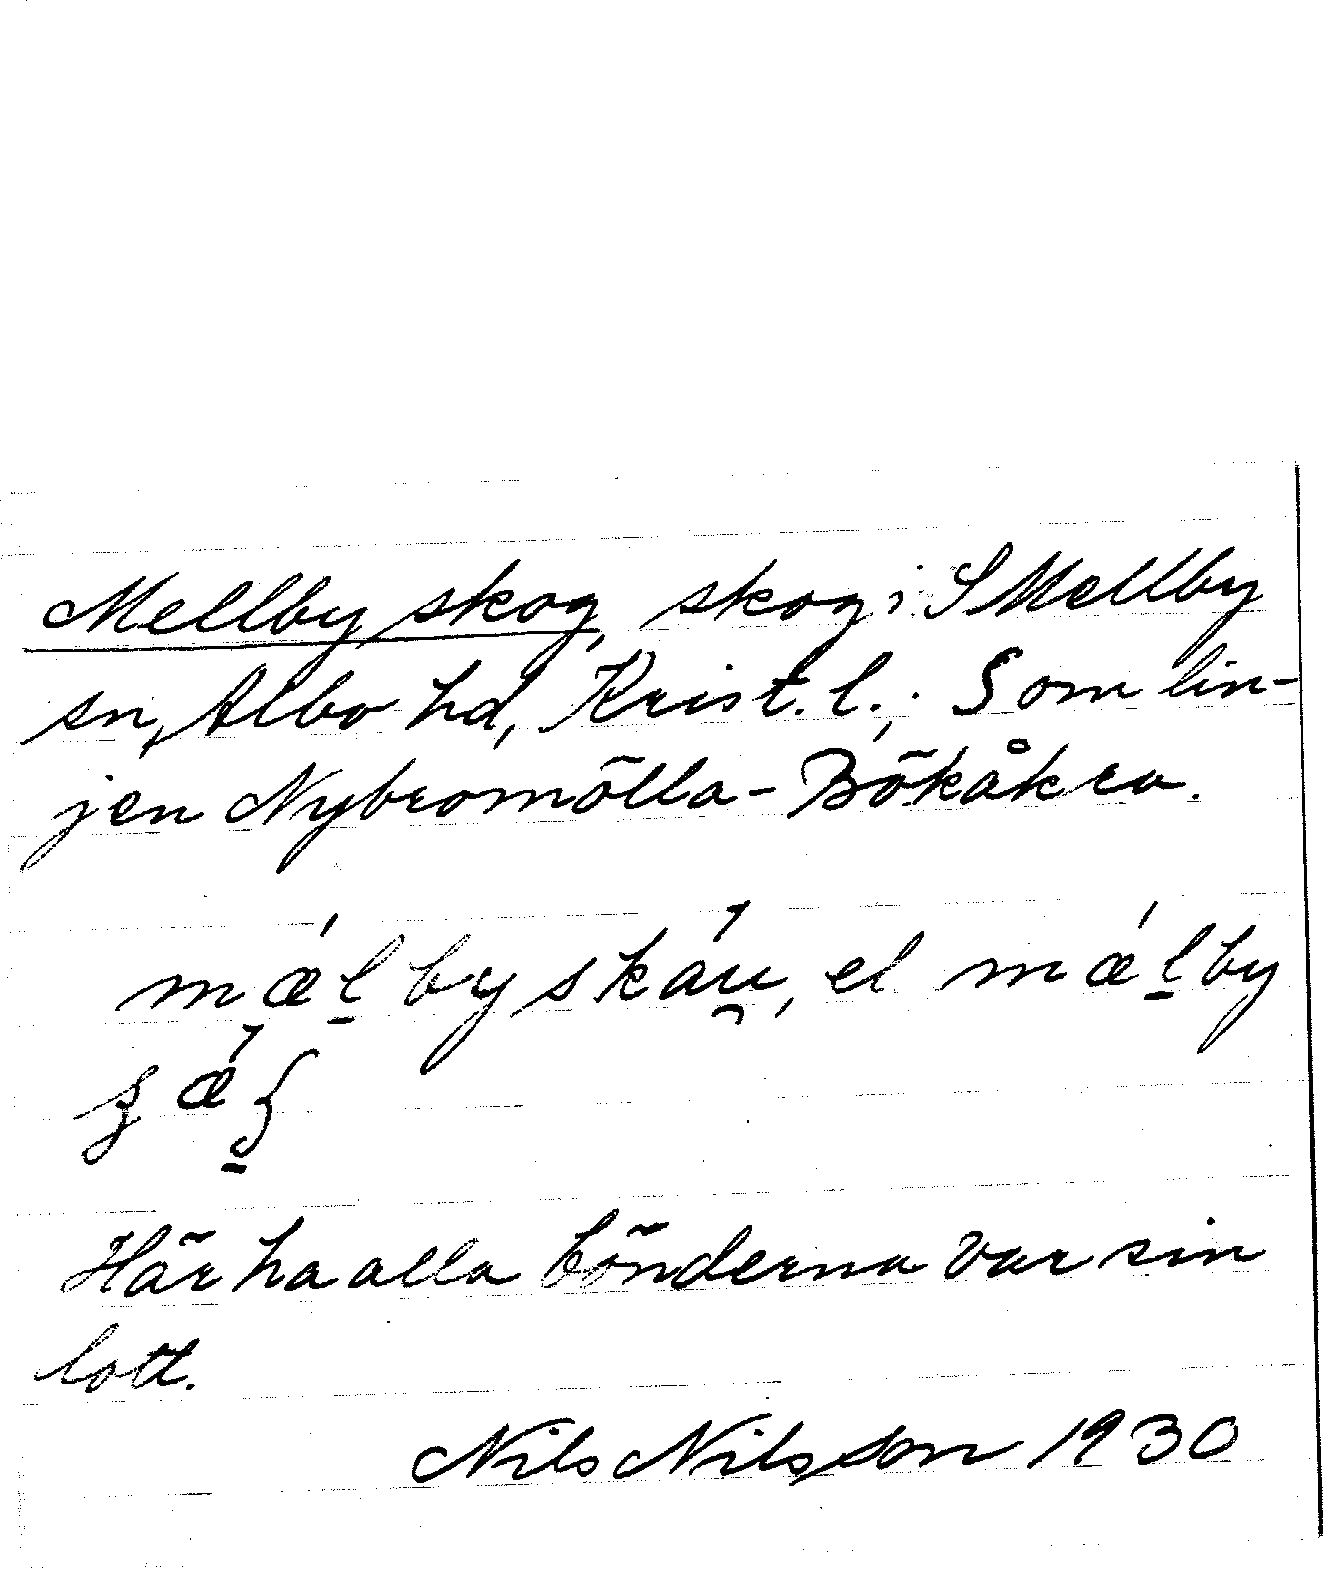 Mellby skog, skog i S Mellby
sn, Albo hd, Krist. l.; S om lin-
jen Nybromölla - Bökåkra.
mǽl̠by skáu̯, el mǽl̠by
Här ha alla bönderna var sin
lott.
Nils Nilsson 1930